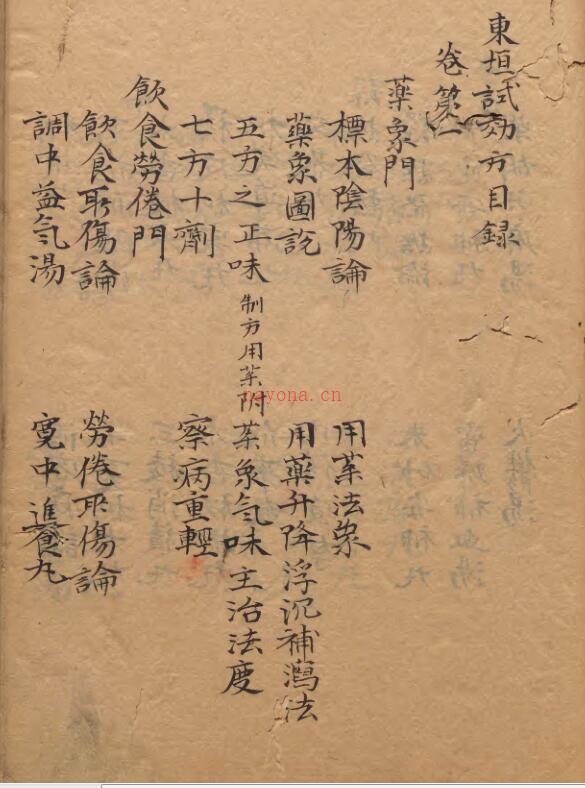 東垣試効方目録
卷第一
藥象門
標本陰陽論 用茱法象
藥象圖説 用藥升降浮沉補瀉法
五方之正味 制方用茱附 茱象气味主治法度
七方十劑 察病重輕
飲食勞倦門
飲食所傷論 勞倦所傷論
調中益气湯 寬中進食丸
nayona.cn